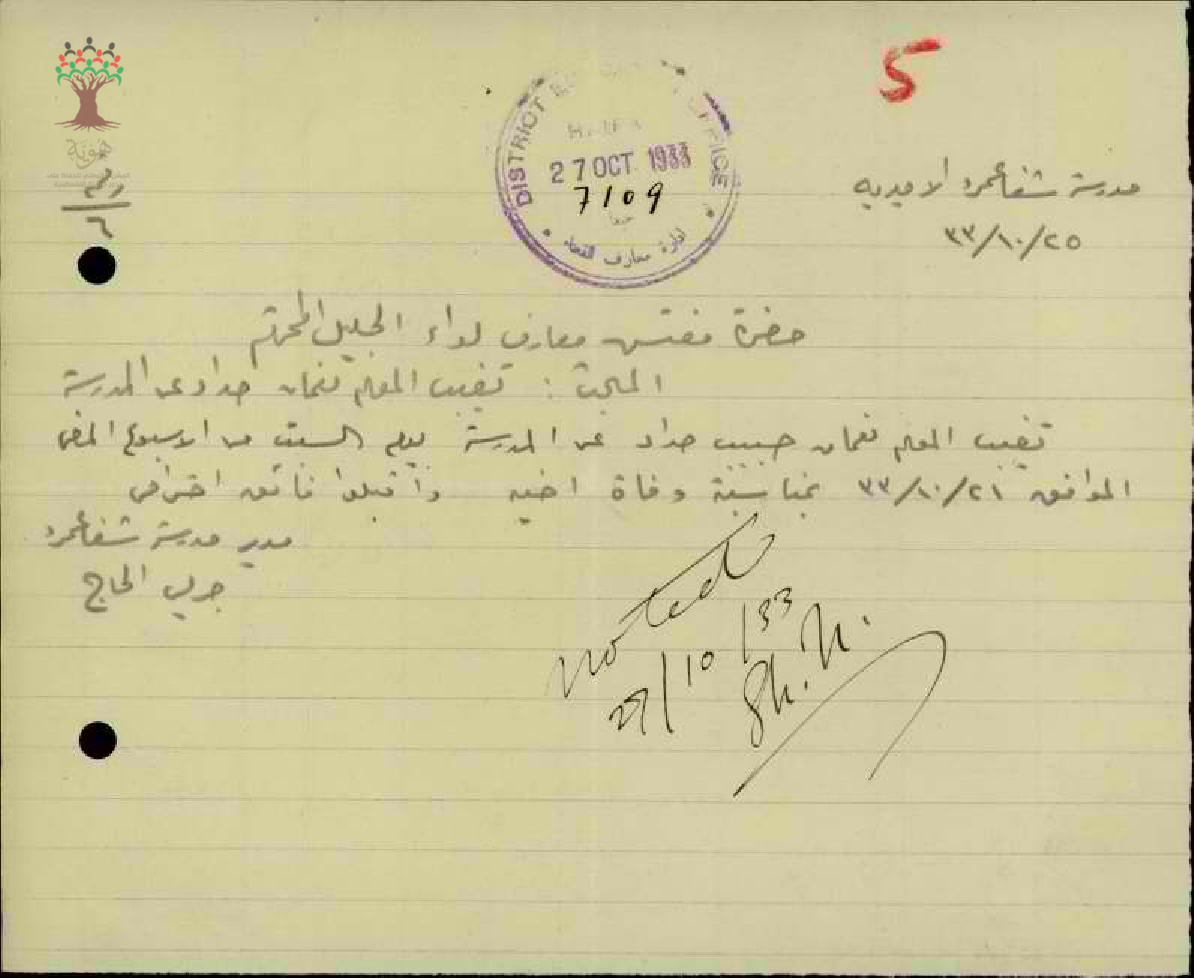 5
DISTRICT OFFICE
HAIFA
27 OCT 1933
7109
حيفا
ادارة معارف القضاء
هوية
رقم
٦
مدرسة شفاعمرو الاميرية
٣٣/١٠/٢٥
حضرة مفتش معارف لواء الجليل المحترم
المبحث : تغيب المعلم نعمان حداد عن المدرسة
تغيب المعلم نعمان حبيب حداد عن المدرسة يوم السبت من الاسبوع الماضي
الموافق ٣٣/١٠/٢١ بمناسبة وفاة اخيه واقبلوا فائق احترامي
مدير مدرسة شفاعمرو
جريس الحاج
noted
27/10/33
Sh. N.